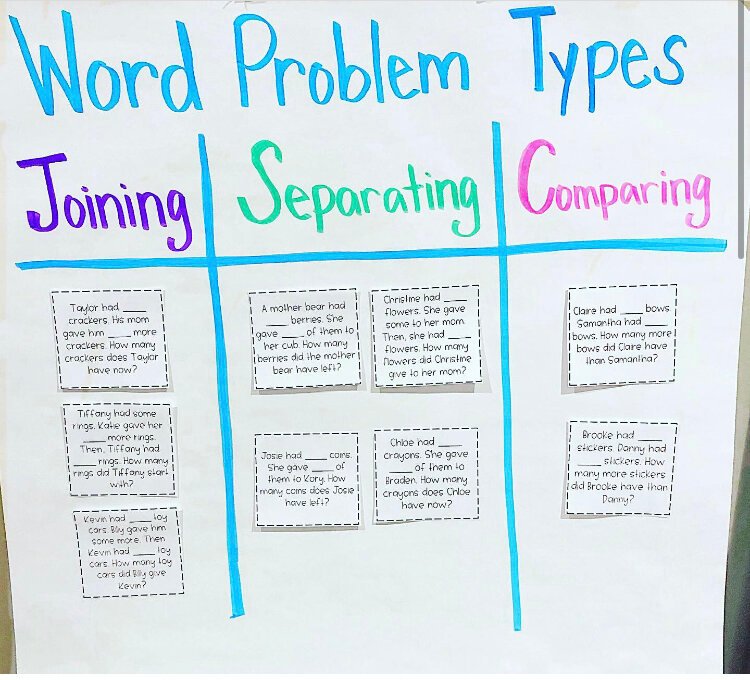 Word Problem Types
Joining
Separating
Comparing
Taylor had ____
crackers. His mom
gave him ____ more
crackers. How many
crackers does Taylor
have now?
Tiffany had some
rings. Katie gave her
____ more rings.
Then, Tiffany had
____ rings. How many
rings did Tiffany start
with?
Kevin had ____ toy
cars. Billy gave him
some more. Then
Kevin had ____ toy
cars. How many toy
cars did Billy give
Kevin?
A mother bear had
____ berries. She
gave ____ of them to
her cub. How many
berries did the mother
bear have left?
Christine had ____
flowers. She gave
some to her mom.
Then, she had ____
flowers. How many
flowers did Christine
give to her mom?
Josie had ____ coins.
She gave ____ of
them to Kory. How
many coins does Josie
have left?
Chloe had ____
crayons. She gave
____ of them to
Braden. How many
crayons does Chloe
have now?
Claire had ____ bows.
Samantha had ____
bows. How many more
bows did Claire have
than Samantha?
Brooke had ____
stickers. Danny had
____ stickers. How
many more stickers
did Brooke have than
Danny?